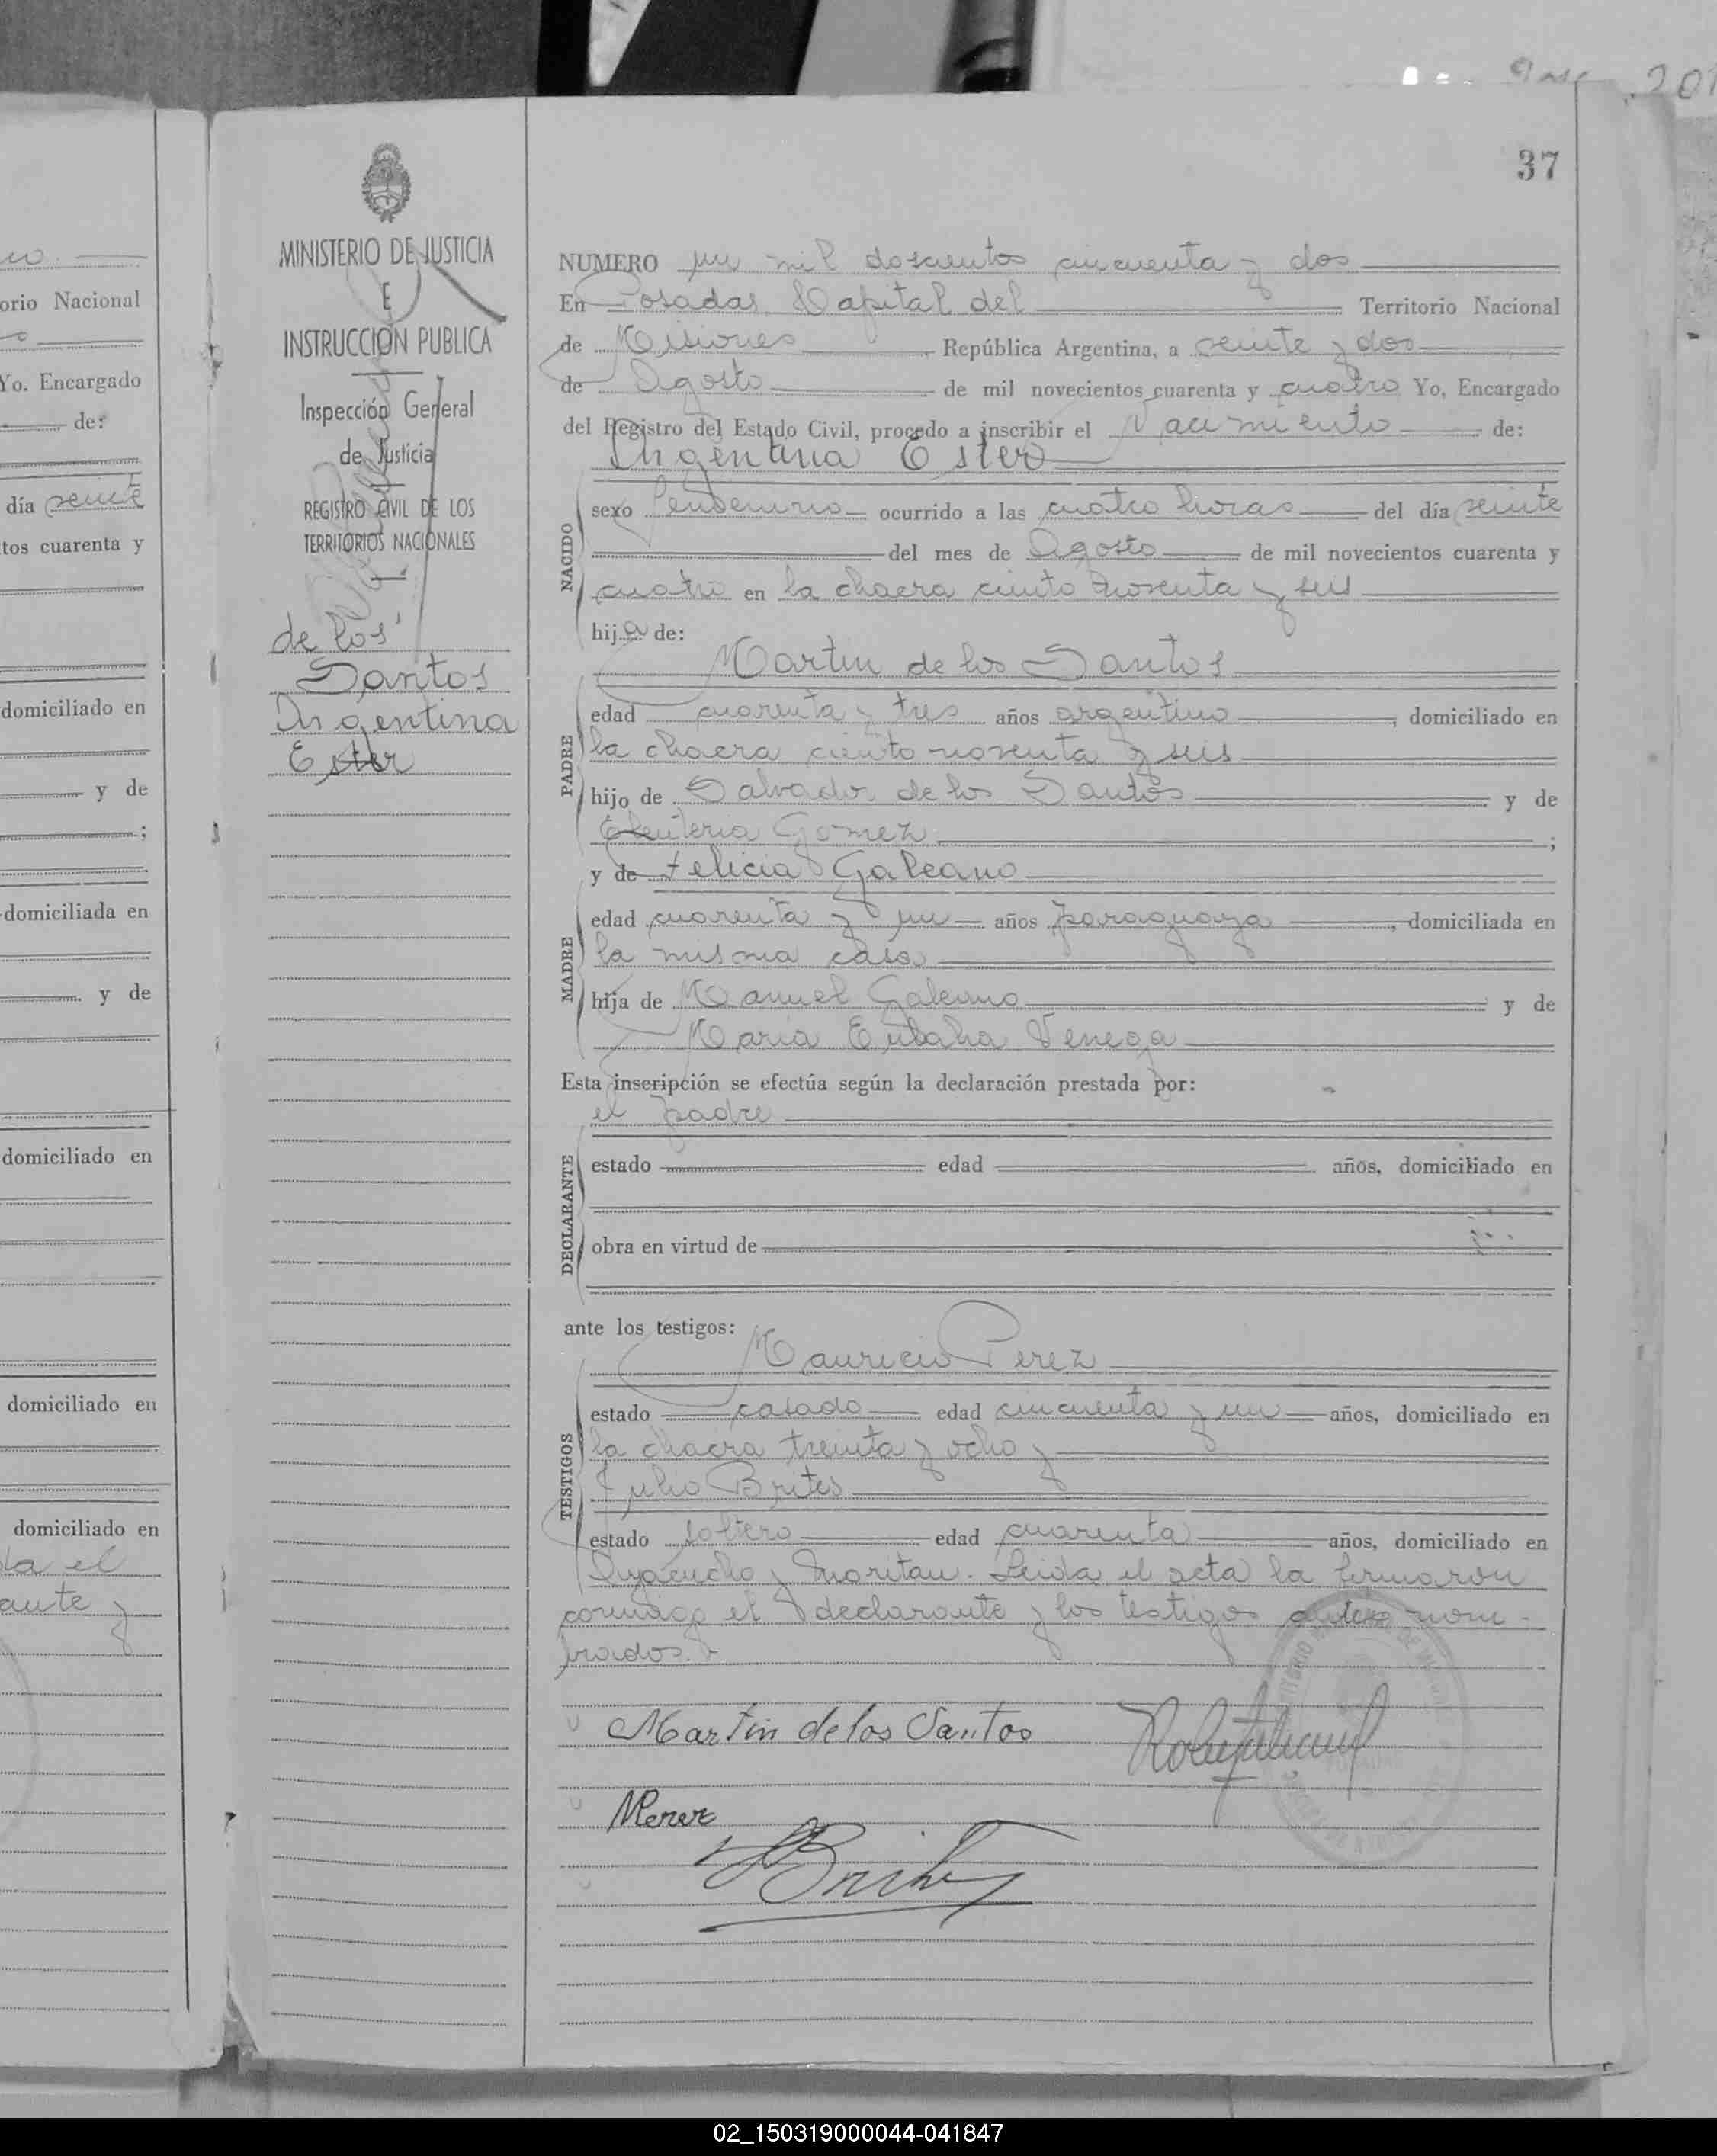 201
37
MINISTERIO DE JUSTICIA
E
INSTRUCCION PUBLICA
Inspección General
de Justicia
REGISTRO CIVIL DE LOS
TERRITORIOS NACIONALES
de los
Santos
Argentina
Ester
orio Nacional
Yo. Encargado
de:
día veinte
tos cuarenta y
domiciliado en
y de
;
domiciliada en
y de
domiciliado en
domiciliado en
domiciliado en
da el
ante y
NUMERO un mil doscientos cincuenta y dos
En Posadas, Capital del Territorio Nacional
de Misiones, República Argentina, a veinte y dos
de Agosto de mil novecientos cuarenta y cuatro Yo, Encargado
del Registro del Estado Civil, procedo a inscribir el Nacimiento de:
Argentina Ester
NACIDO
sexo femenino ocurrido a las cuatro horas del día veinte
del mes de Agosto de mil novecientos cuarenta y
cuatro en la chacra ciento noventa y seis
hija de:
Martin de los Santos
PADRE
edad cuarenta y tres años argentino, domiciliado en
la chacra ciento noventa y seis
hijo de Salvador de los Santos y de
Eleuteria Gomez ;
y de Felicia Galeano
MADRE
edad cuarenta y un años paraguaya, domiciliada en
la misma casa
hija de Manuel Galeano y de
Maria Eulalia Venega
Esta inscripción se efectúa según la declaración prestada por:
el padre
DECLARANTE
estado edad años, domiciliado en
obra en virtud de
ante los testigos:
Mauricio Perez
TESTIGOS
estado casado edad cincuenta y un años, domiciliado en
la chacra treinta y ocho y
Julio Brites
estado soltero edad cuarenta años, domiciliado en
Ayacucho y Moritan. Leida el acta la firmaron
conmigo el declarante y los testigos antes nom-
brados.
Martin de los Santos
MPerez
JBrites
02_150319000044-041847